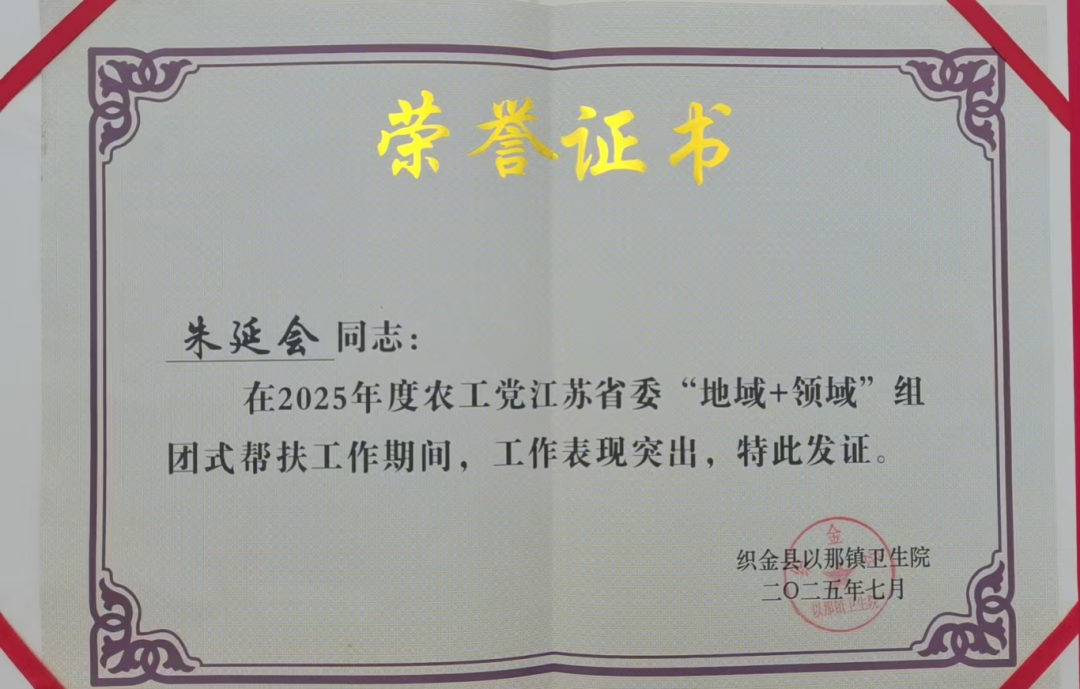 荣誉证书
朱延会同志：
在2025年度农工党江苏省委“地域+领域”组
团式帮扶工作期间，工作表现突出，特此发证。
织金县以那镇卫生院
二〇二五年七月
金
以那镇卫生院